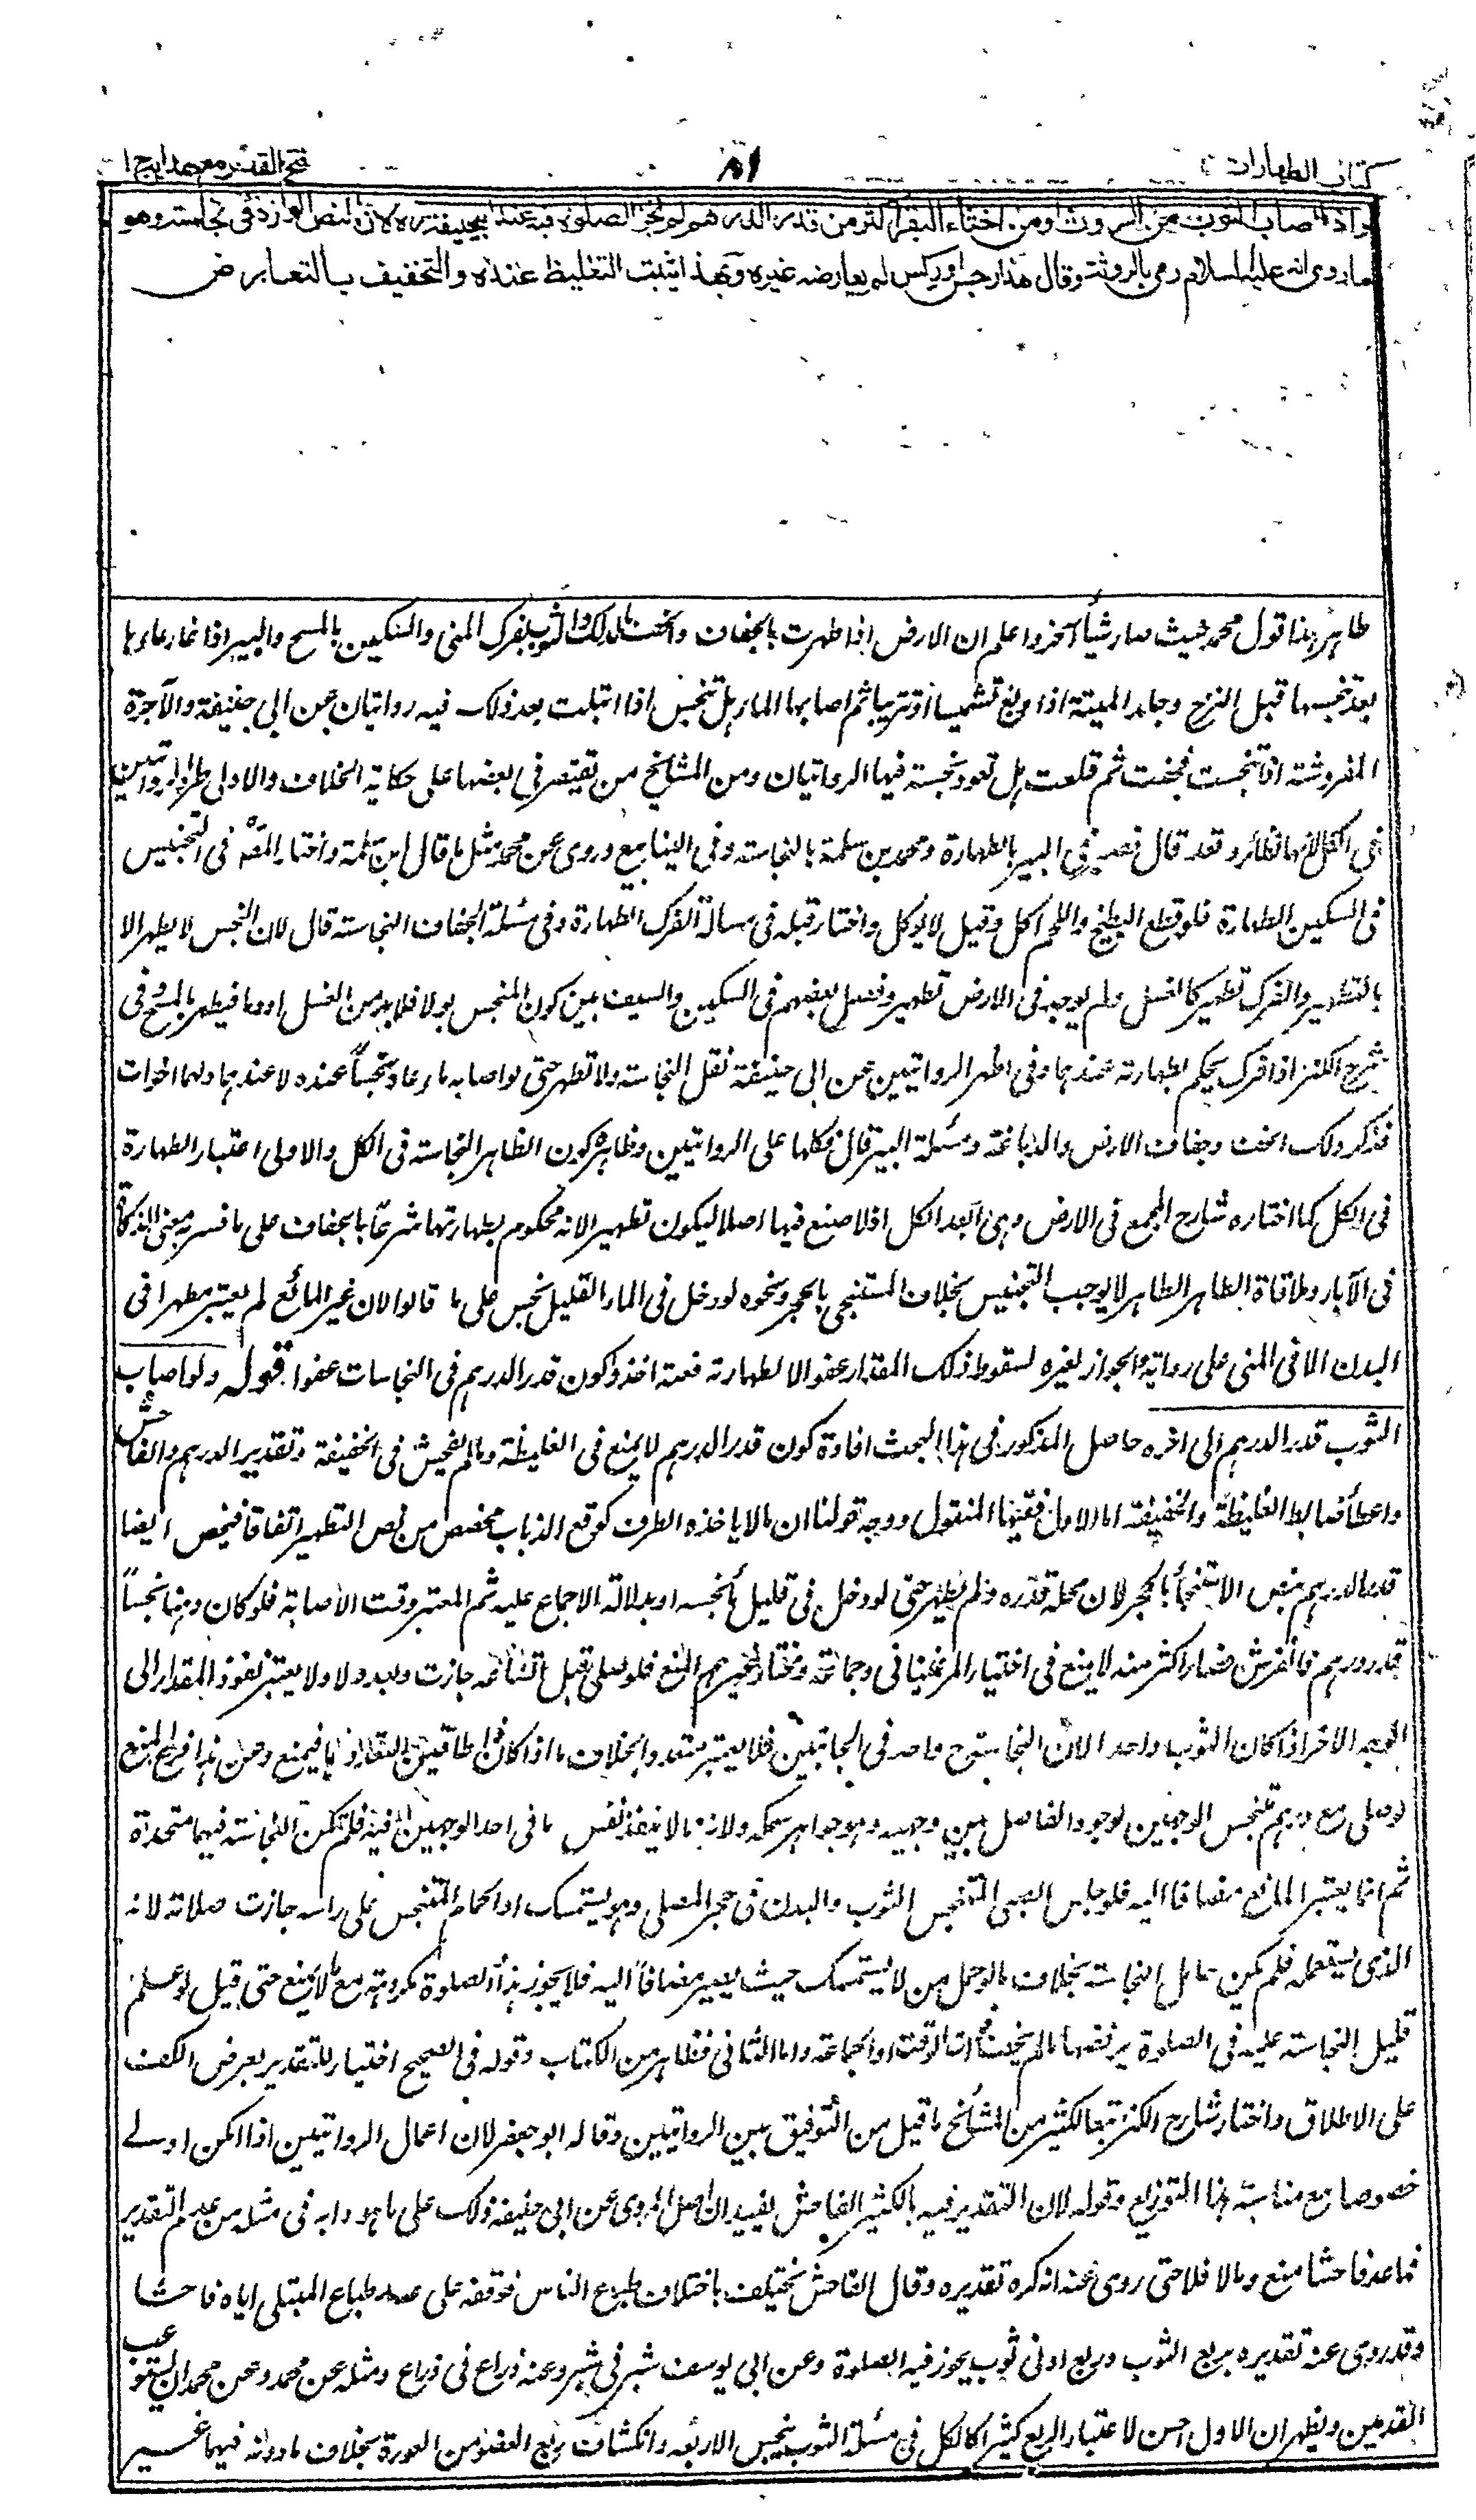 كتاب الطهارات
٨١
فتح القدير مع هدايه ج ١
واذا اصاب الثوب من الروث او من اخثاء البقر اكثر من قدر الدرهم لم تجز الصلوة فيه عند ابيحنيفة ره لان النص الوارد في نجاسته وهو
ما روى انه عليه السلام رمى بالروثة وقال هذا رجس او ركس لم يعارضه غيره وبهذا يثبت التغليظ عنده والتخفيف بالتعارض
ظاهر هذا قول محمد حيث صار شيأ آخر واعلم ان الارض اذا طهرت بالجفاف والخف بالدلك والثوب بفرك المنى والسكين بالمسح والبير اذا غار ماءها
بعد تنجسها قبل النزح وجلد الميتة اذا دبغ تشميسا او تتريبا ثم اصابها الماء هل تنجس اذا ابتلت بعد ذلك فيه روايتان عن ابي حنيفة والآجرة
المفروشة اذا تنجست فجفت ثم قلعت هل تعود نجسة فيها الروايتان ومن المشايخ من يقتصر في بعضها على حكاية الخلاف والاولى طرد الروايتين
فى الكل لانها نظائر وقد قال نصير فى البير بالطهارة ومحمد بن سلمة بالنجاسة وفى الينابيع وروى عن محمد مثل ما قال ابن سلمة واختار المص فى التجنيس
فى السكين الطهارة فلو قطع البطيخ واللحم اكل وقيل لا يوكل واختار قبله فى مسالة الفرك الطهارة وفى مسئلة الجفاف النجاسة قال لان النجس لا يطهر الا
بالتطهير والفرك تطهير كالغسل ولم يوجد فى الارض تطهير وفصل بعضهم فى السكين والسيف بين كون المنجس بولا فلا بد من الغسل او دما فيطهر بالمسح وفى
شرح الكنز اذا فرك يحكم بطهارته عندهما وفى اظهر الروايتين عن ابى حنيفة تقل النجاسة ولا تطهر حتى لو اصابه ماء عاد نجسا عنده لا عندهما ولها اخوات
فذكر دلك الخف وجفاف الارض والدباغة ومسئلة البير قال فكلها على الروايتين وظاهره كون الظاهر النجاسة فى الكل والاولى اعتبار الطهارة
فى الكل كما اختاره شارح المجمع فى الارض وهى ابعد الكل اذ لا صنع فيها اصلا ليكون تطهيرا لانه محكوم بطهارتها شرعا بالجفاف على ما فسر به معنى الذكاة
فى الآبار وملاقاة الطاهر الطاهر لا يوجب التنجيس بخلاف المستنجى بالحجر ونحوه لو دخل فى الماء القليل نجس على ما قالوا لان غير المائع لم يعتبر مطهرا فى
البدن الا فى المنى على رواية والجواز لغيره لسقوط ذلك المقدار عفوا لا لطهارته فعنه اخذوا كون قدر الدرهم فى النجاسات عفوا قوله ولو اصاب
الثوب قدر الدرهم الى اخره حاصل المذكور فى هذا البحث افادة كون قدر الدرهم لا يمنع فى الغليظة وما لم يفحش فى الخفيفة وتقدير الدرهم والفاحش
واعطاء ضابط الغليظة والخفيفة اما الاول ففيها المنقول ووجه قولنا ان ما لا ياخذه الطرف كوقع الذباب مخصص من نص التطهير اتفاقا فيخص ايضا
قدر الدرهم بنص الاستنجاء بالحجر لان محله قدره ولم يطهر حتى لو دخل فى قليل ماء نجسه او بدلالة الاجماع عليه ثم المعتبر وقت الاصابة فلو كان دهنا نجسا
قدر درهم فانفرش فصار اكثر منه لا يمنع فى اختيار المرغينانى وجماعة ومختار غيرهم المنع فلو صلى قبل اتساعه جازت وبعده لا ولا يعتبر نفوذ المقدار الى
الوجه الاخر اذا كان الثوب واحدا لان النجاسة ح واحد فى الجانبين فلا يعتبر متعددا بخلاف ما اذا كان ذا طاقين لتعددها فيمنع وعن هذا فرع المنع
لو صلى مع درهم متنجس الوجهين لوجود الفاصل بين وجهيه وهو جواهر سمكه ولانه مما لا ينفذ نفس ما فى احد الوجهين فيه فلم تكن النجاسة فيهما متحدة
ثم انما يعتبر المانع مضافا اليه فلو جلس الصبى المتنجس الثوب والبدن فى حجر المصلى وهو يستمسك او الحمام المتنجس على راسه جازت صلاته لانه
الذى يستعمله فلم يكن حامل النجاسة بخلاف ما لو حمل من لا يستمسك حيث يصير مضافا اليه فلا يجوز هذا والصلوة مكروهة مع ما لا يمنع حتى قيل لو علم
قليل النجاسة عليه فى الصلوة يرفضها ما لم يخف فوت الوقت او الجماعة واما الثانى فظاهر من الكتاب وقوله فى الصحيح اختيار للتقدير بعرض الكف
على الاطلاق واختار شارح الكنز تبعا لكثير من المشائخ ما قيل من التوفيق بين الروايتين وقاله ابو جعفر لان اعمال الروايتين اذا امكن اولے
خصوصا مع مناسبة هذا التوزيع وقوله لان التقدير فيه بالكثير الفاحش يفيد ان اصل المروى عن ابى حنيفة ذلك على ما هو دابه فى مثله من عدم التقدير
فما عد فاحشا منع وما لا فلا حتى روى عنه انه كره تقديره وقال الفاحش يختلف باختلاف طباع الناس فوقفه على عد طباع المبتلى اياه فاحشا
وقد روى عنه تقديره بربع الثوب وربع ادنى ثوب يجوز فيه الصلوة وعن ابى يوسف شبر فى شبر وعنه ذراع فى ذراع ومثله عن محمد وعن محمد ان يستوعب
القدمين ويظهر ان الاول احسن لاعتبار الربع كثيرا كالكل فى مسئلة الثوب ينجس الا ربعه وانكشاف ربع العضو من العورة بخلاف ما دونه فيهما غير